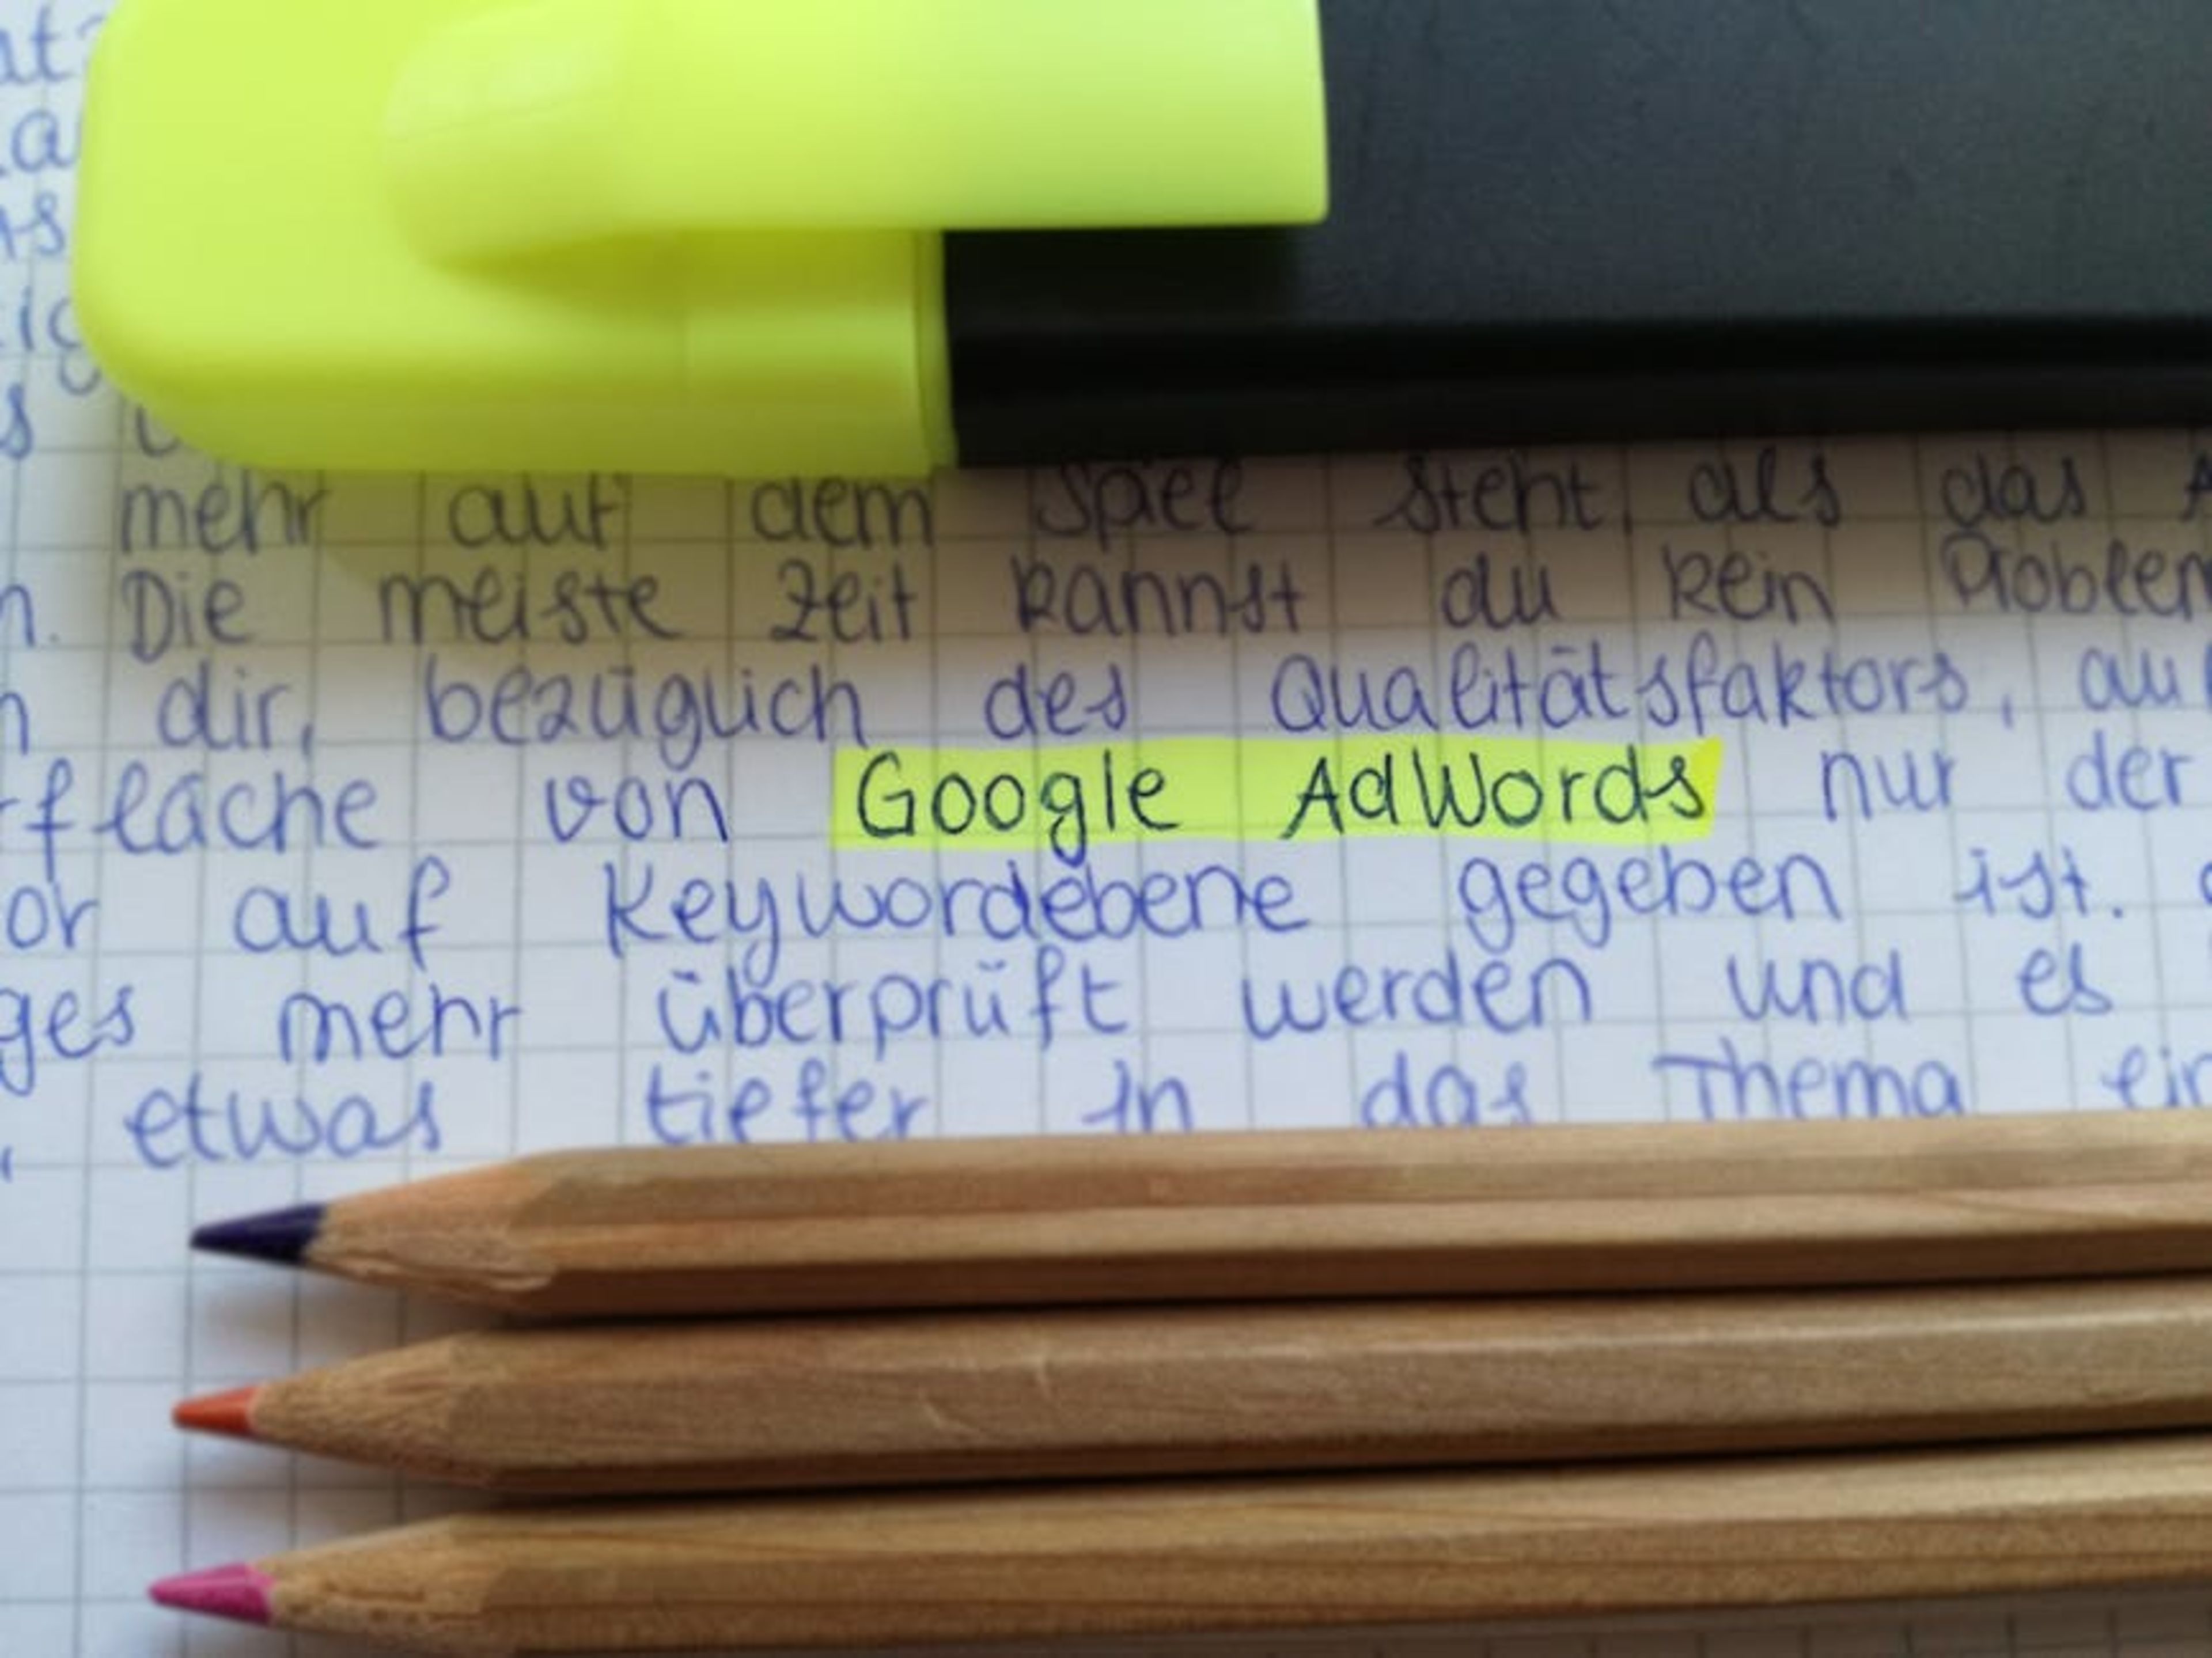 mehr auf dem Spiel steht, als das
Die meiste Zeit kannst du kein
dir, bezüglich des Qualitätsfaktors,
fläche von Google AdWords nur der
or auf Keywordebene gegeben ist.
ges mehr überprüft werden und es
etwas tiefer in das Thema ein